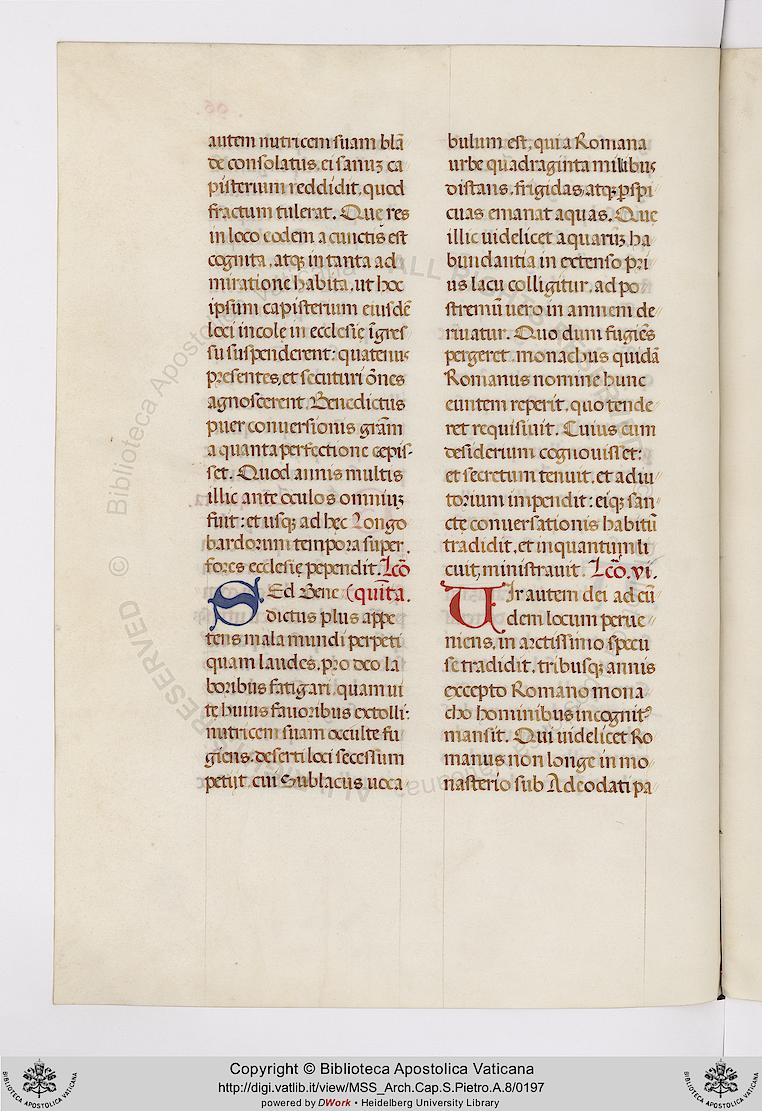 autem nutricem suam blā
de consolatus, ei sanuꝫ ca
pisterium reddidit, quod
fractum tulerat. Que res
in loco eodem a cunctis est
cognita, atqꝫ in tanta ad
miratione habita, ut hoc
ipsum capisterium eiusdē
loci incolę in ecclesię īgres
su suspenderent: quatenus
presentes, et secuturi ōnes
agnoscerent, Benedictus
puer conuersionis grām
a quanta perfectione cepis-
set. Quod annis multis
illic ante oculos omniuꝫ
fuit: et usqꝫ ad hęc Longo
bardorum tempora super
fores ecclesię pependit. Lcō
SEd Bene (quīta.
dictus plus appe
tens mala mundi perpeti
quam laudes, pro deo la
boribus fatigari, quam ui
tę huius fauoribus extolli:
nutricem suam occulte fu
giens, deserti loci secessum
petijt, cui Sublacus uoca
bulum est, qui a Romana
urbe quadraginta milibus
distans, frigidas, atqꝫ ꝑspi
cuas emanat aquas. Quę
illic uidelicet aquaruꝫ ha
bundantia in extenso pri
us lacu colligitur, ad po
stremū uero in amnem de
riuatur. Quo dum fugiēs
pergeret, monachus quidā
Romanus nomine hunc
euntem reperit, quo tende
ret requisiuit. Cuius cum
desiderium cognouisset:
et secretum tenuit, et adiu
torium impendit: eiqꝫ san
cte conuersationis habitū
tradidit, et in quantum li
cuit, ministrauit. Lcō. vi.
UIr autem dei ad eū
dem locum perue
niens, in arctissimo specu
se tradidit, tribusqꝫ annis
excepto Romano mona
cho hominibus incognitꝰ
mansit. Qui uidelicet Ro
manus non longe in mo
nasterio sub Adeodati pa
© Biblioteca Apostolica Vaticana ALL RIGHTS RESERVED
Copyright © Biblioteca Apostolica Vaticana
http://digi.vatlib.it/view/MSS_Arch.Cap.S.Pietro.A.8/0197
powered by DWork • Heidelberg University Library
BIBLIOTECA APOSTOLICA VATICANA
BIBLIOTECA APOSTOLICA VATICANA